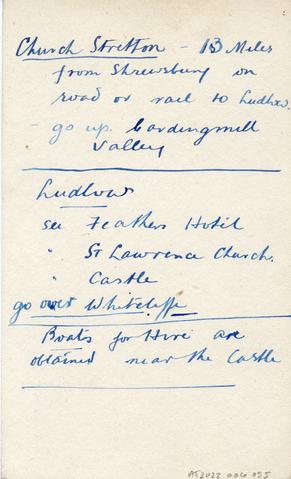 Church Stretton - 13 Miles
from Shrewsbury on
road or rail to Ludlow.
- go up Cardingmill
Valley
Ludlow
see Feathers Hotel
" St Lawrence Church.
" Castle
go over Whitcliffe
Boats for Hire are
obtained near the Castle
AT2022.006.055